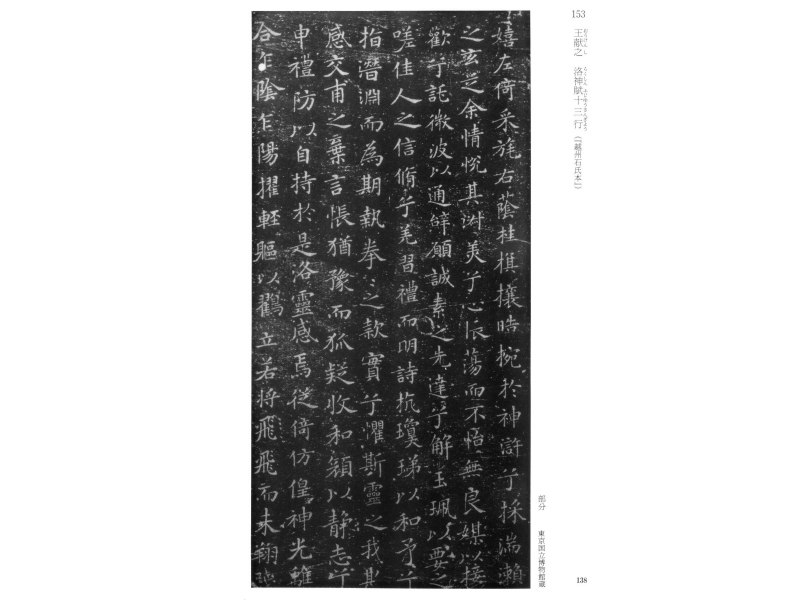 153
王献之 洛神賦十三行(『越州石氏本』)
嬉左倚采旄右蔭桂棋攘皓捥於神滸兮採湍瀨
之玄芝余情悅其淑美兮心振蕩而不怡無良媒以接
歡兮託微波以通辭願誠素之先達兮解玉珮以要之
嗟佳人之信脩兮羌習禮而明詩抗瓊珶以和予兮
指潛淵而為期執拳〻之款實兮懼斯靈之我欺
感交甫之棄言悵猶豫而狐疑收和顏以静志兮
申禮防以自持於是洛靈感焉徙倚仿偟神光離
合乍陰乍陽擢輕軀以鸖立若将飛飛而未翔踐
部分 東京国立博物館蔵
138